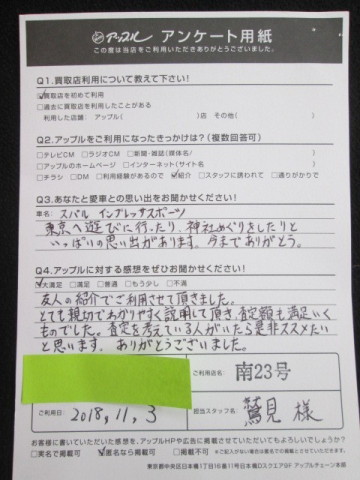 アップル アンケート用紙
この度は当店をご利用いただきありがとうございました。
Q1.買取店利用について教えて下さい!
☑買取店を初めて利用
□過去に買取店を利用したことがある
利用した店舗: アップル( )店 その他( )
Q2.アップルをご利用になったきっかけは?(複数回答可)
□テレビCM □ラジオCM □新聞・雑誌(媒体名/ )
□アップルのホームページ □インターネット(サイト名 )
□チラシ □DM □利用経験があるので ☑紹介 □スタッフに誘われて □通りがかりで
Q3.あなたと愛車との思い出をお聞かせください!
車名: スバル インプレッサスポーツ
東京へ遊びに行ったり、神社めぐりをしたりと
いっぱいの思い出があります。今までありがとう。
Q4.アップルに対する感想をぜひお聞かせください!
☑大満足 □満足 □普通 □もう少し □不満
友人の紹介でご利用させて頂きました。
とても親切でわかりやすく説明して頂き、査定額も満足いく
ものでした。査定を考えている人がいたら是非ススメたい
と思います。ありがとうございました。
ご利用店名: 南23号
ご利用日: 2018,11,3
担当スタッフ名: 鷲見 様
お客様に書いていただいた感想を、アップルHPや広告に掲載させていただいてもよろしいでしょうか?
□実名で掲載可 ☑匿名なら掲載可 □掲載不可 ※ご記入がない場合は匿名で掲載とさせていただきます。
東京都中央区日本橋1丁目16番11号日本橋Dスクエア9F アップルチェーン本部